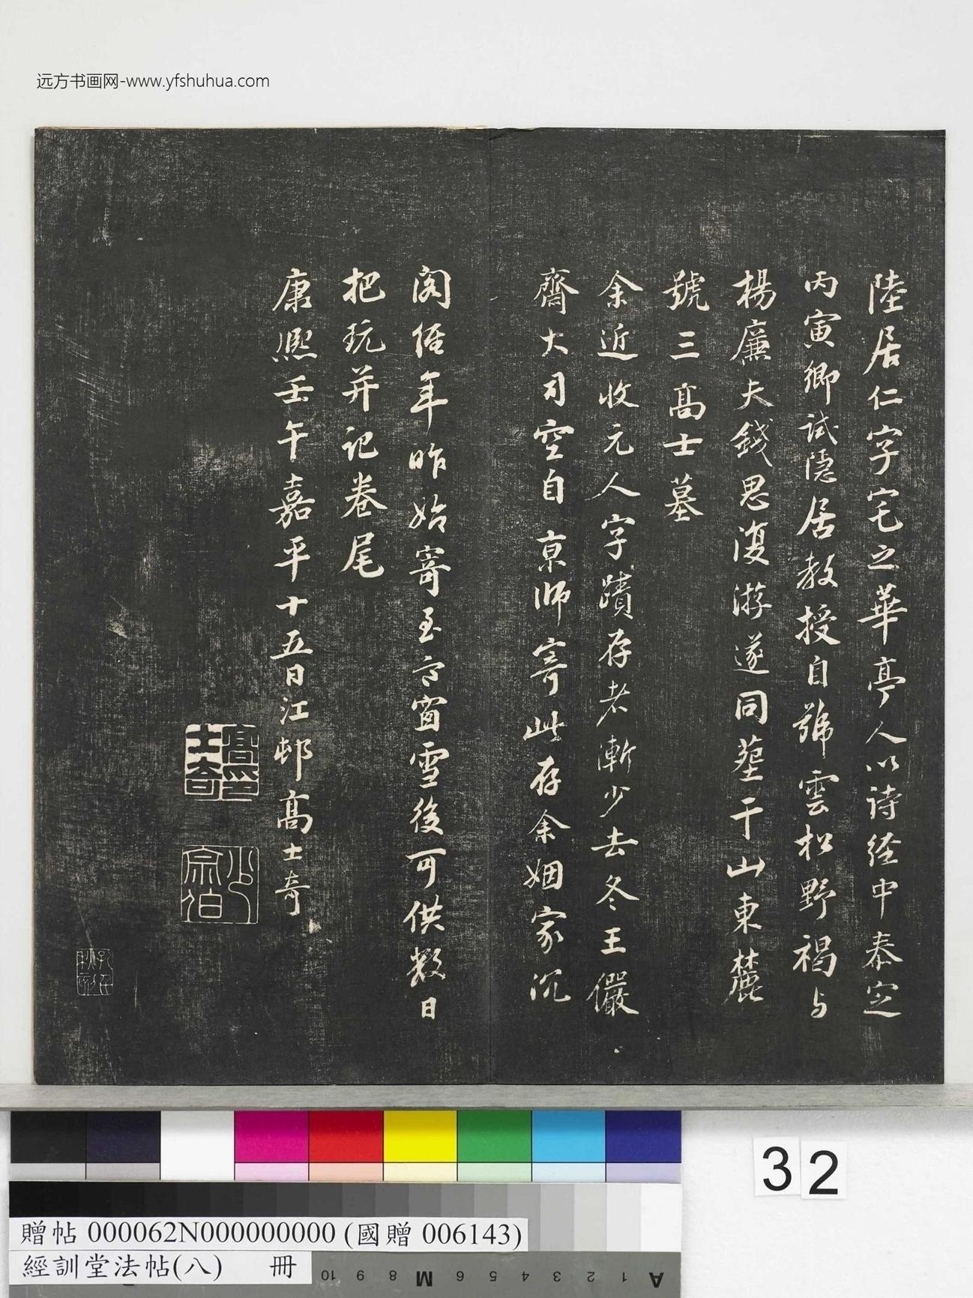 远方书画网-www.yfshuhua.com
陸居仁字宅之華亭人以诗经中泰定
丙寅鄉試隱居教授自號雲松野褐与
楊廉夫錢思復游遂同葬干山東麓
號三高士墓
余近收元人字蹟存者漸少去冬王儼
齋大司空自京師寄此存余姻家沉
閣經年昨始寄至六窗雪後可供數日
把玩并記卷尾
康熙壬午嘉平十五日江邨高士奇
高士奇印
宗伯
32
贈帖 000062N000000000 (國贈 006143)
經訓堂法帖(八) 冊
10 9 8 M 6 5 4 3 2 1 A